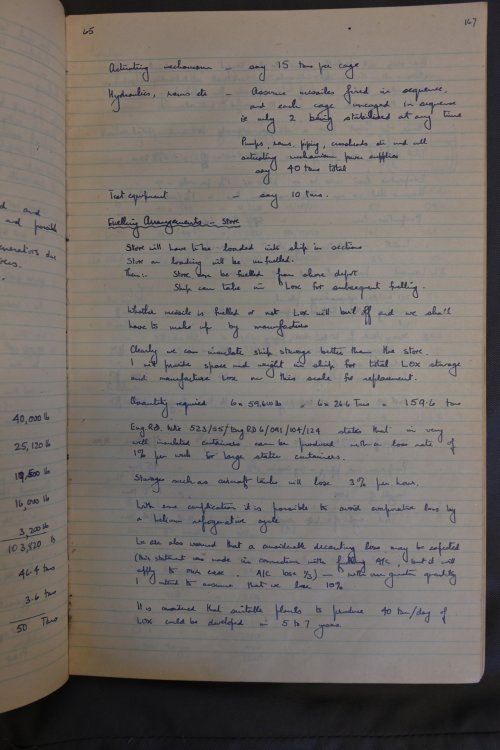 65
147
Activating mechanism - say 15 tons per cage
Hydraulics, rams etc - Assume missiles fired in sequence.
and each cage uncaged in sequence
ie only 2 being stabilised at any time
Pumps, rams, piping, crossheads etc and all
activating mechanism power supplies
say 40 tons total
Test equipment - say 10 tons.
Fuelling Arrangements in Store
Store will have to be loaded into ship in sections
Store on loading will be unfuelled.
Then:- Store can be fuelled from shore depot
Ship can take in Lox for subsequent fuelling.
Whether missile is fuelled or not Lox will boil off and we shall
have to make up by manufacture
Clearly we can insulate ship storage better than the store.
I will provide space and weight in ship for total Lox storage
and manufacture Lox on this scale for replacement.
Quantity required 6 x 59,600 lb = 6 x 26.6 Tons = 159.6 tons
Eng. R.D. Note 523/55/Eng RD6/091/104/124 states that in very
well insulated containers can be produced with a loss rate of
1% per week for large static containers.
Storages such as aircraft tanks will lose 3% per hour.
With some complication it is possible to avoid evaporative loss by
a helium refrigerative cycle
We are also warned that a considerable decanting loss may be expected
(this statement was made in connection with fuelling A/C, but it will
apply to our case. A/C lose 1/3) — with our greater quantity
I intend to assume that we lose 10%
It is considered that suitable plants to produce 40 ton/day of
Lox could be developed in 5 to 7 years.
and
and possible
generators due
40,000 lb
25,120 lb
19,500 lb
16,000 lb
3,200 lb
103,820 lb
46.4 tons
3.6 tons
50 Tons